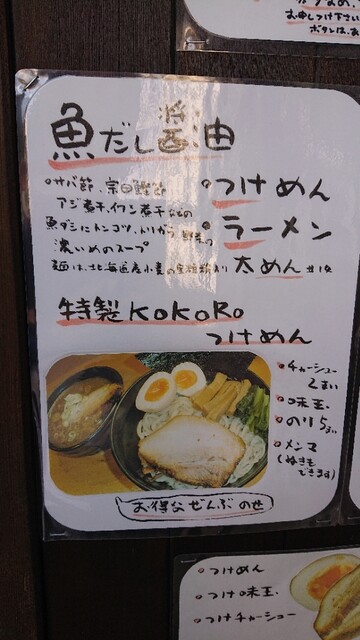 お申しつけ下さい
ボタンは、あ
魚だし醤油
サバ節、宗田鰹節
アジ煮干、イワシ煮干などの
魚ダシにトンコツ、トリガラ、野菜の
濃いめのスープ
麺は、北海道産小麦の
つけめん
ラーメン
太めん
特製KoKoRo
つけめん
チャーシュー
2まい
味玉
のり5まい
メンマ
(ぬきも
できます)
お得なぜんぶのせ
つけめん
つけ味玉
つけチャーシュー